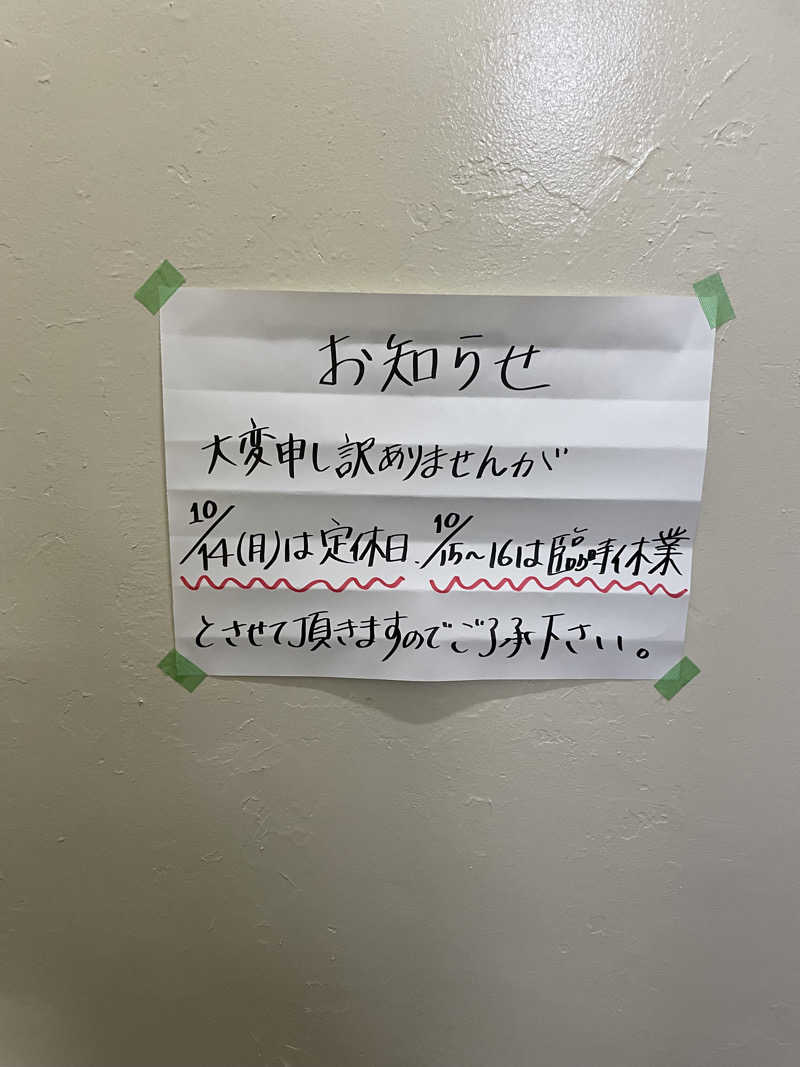 お知らせ
大変申し訳ありませんが
10/14(月)は定休日、10/15~16は臨時休業
とさせて頂きますのでご了承下さい。